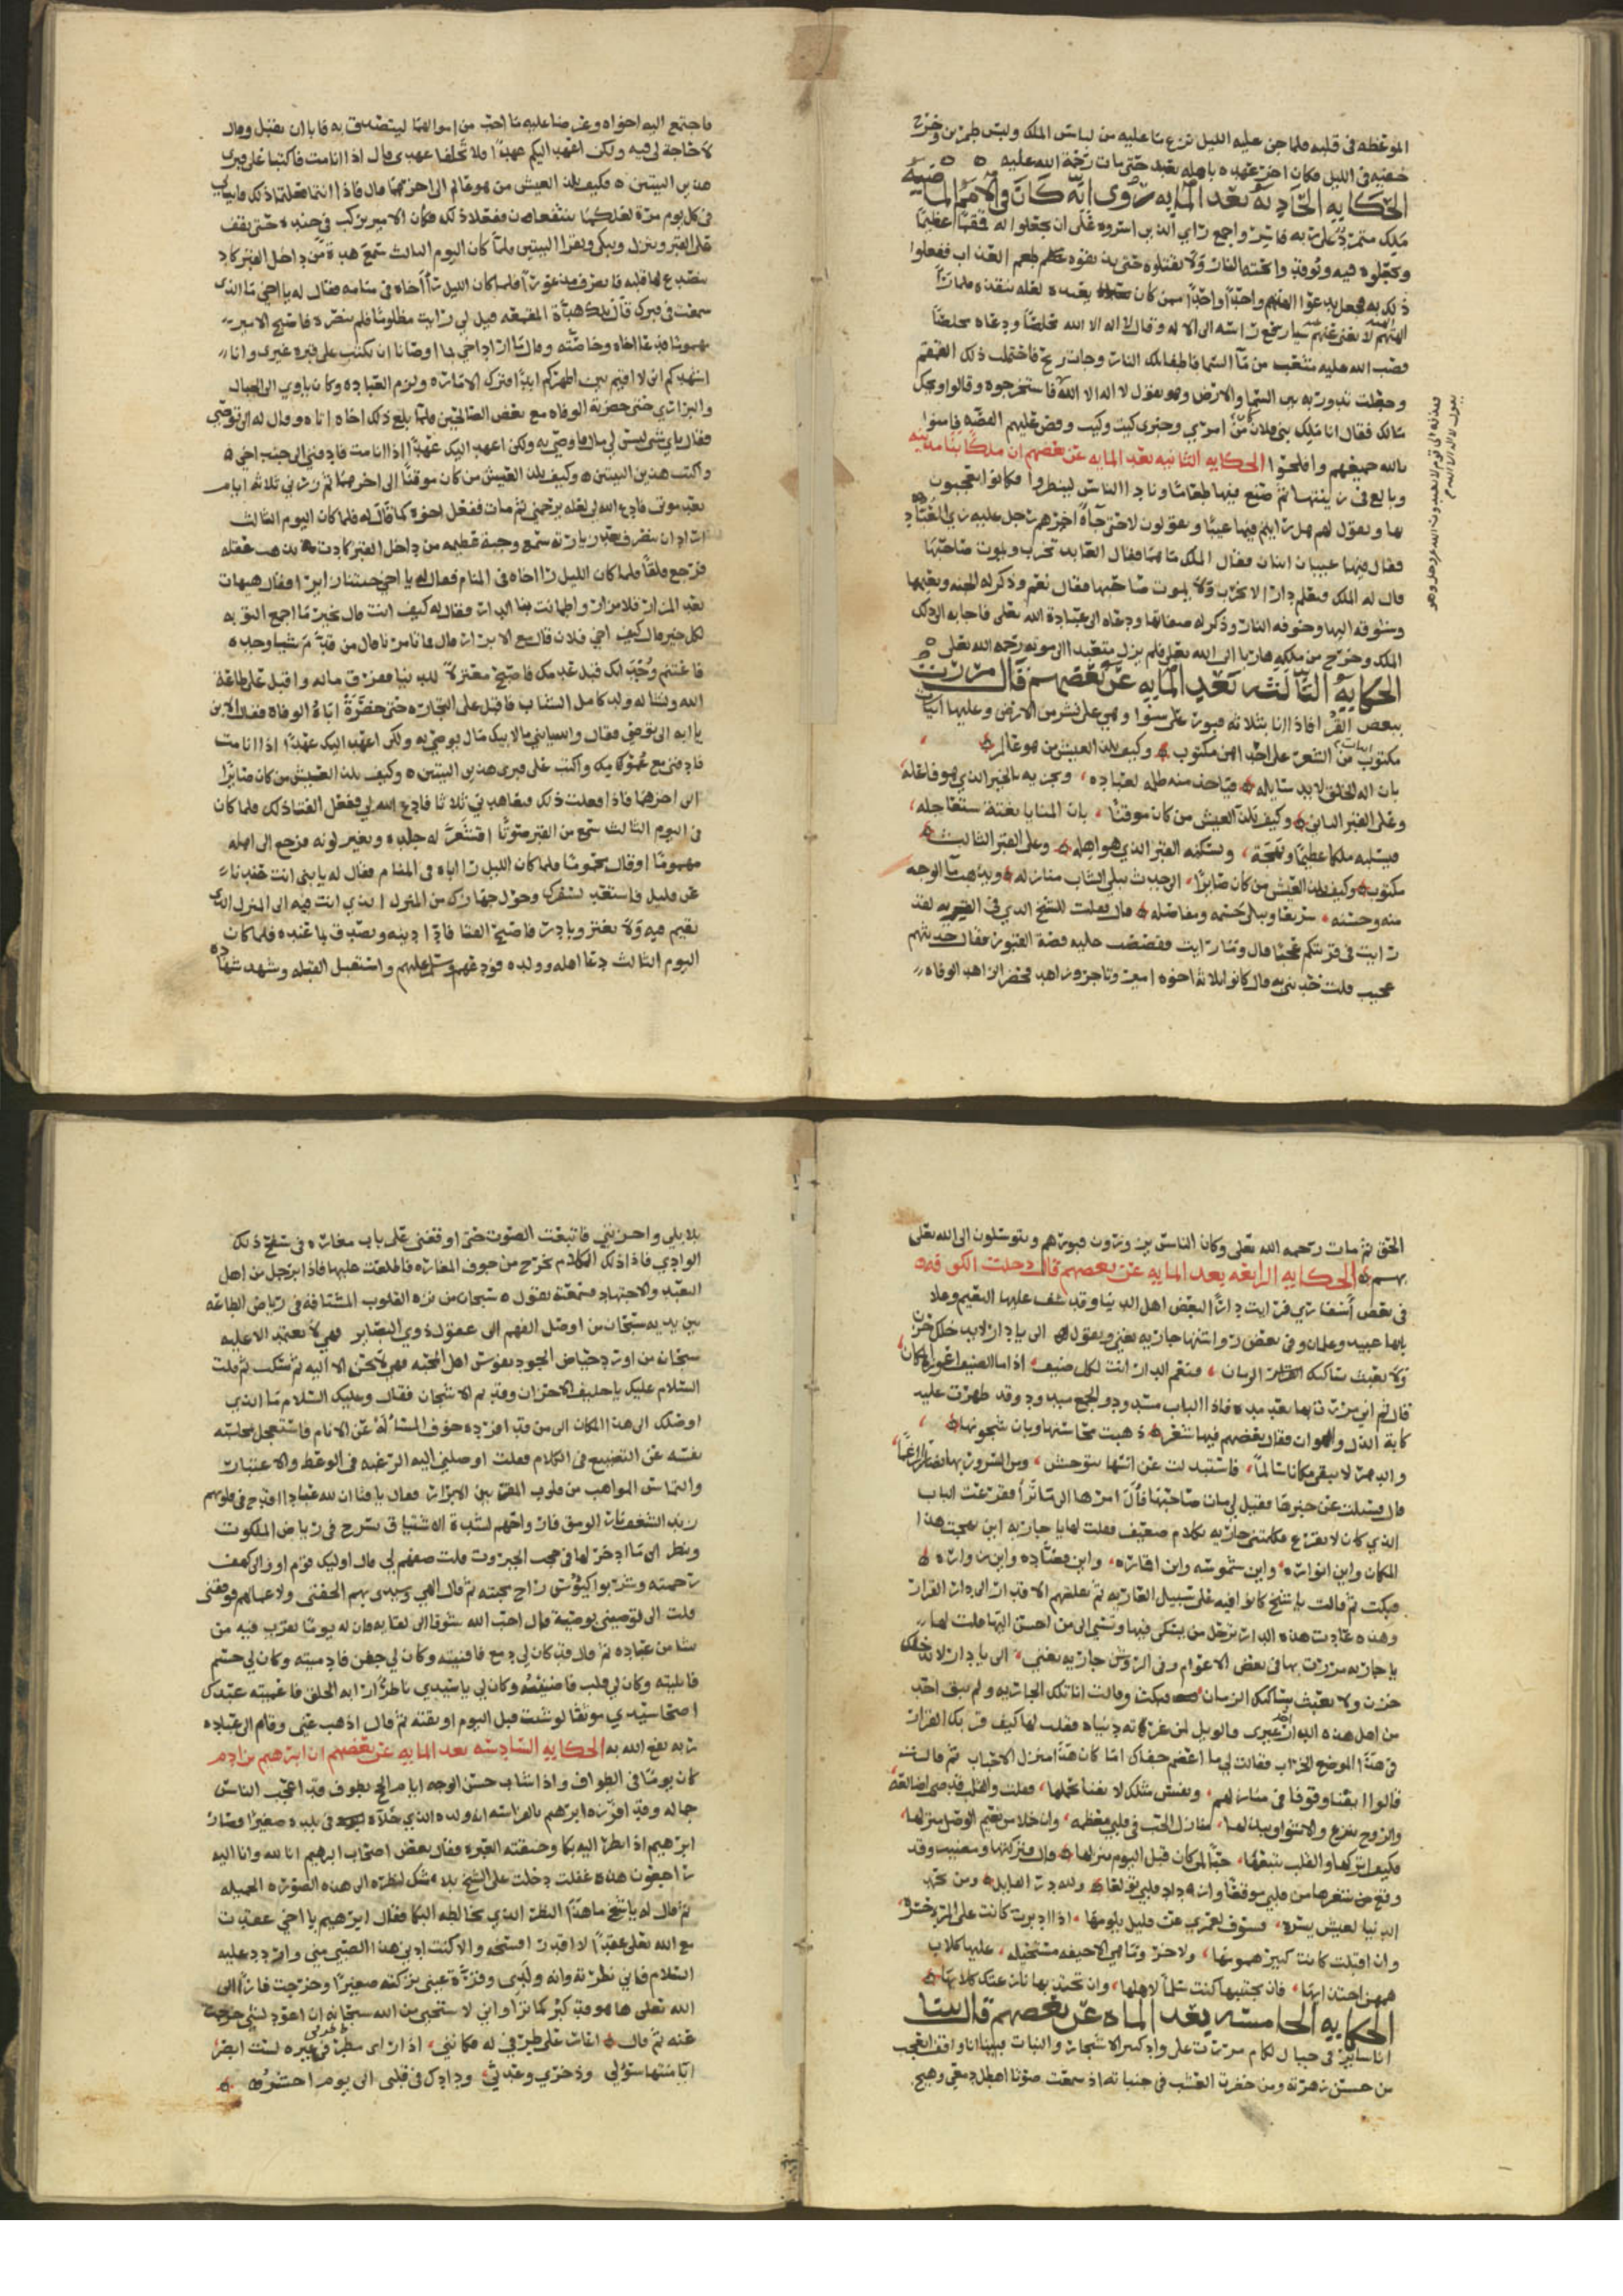 الموعظه في قلبه فلما جن عليه الليل نزع ما عليه من لباس الملك ولبس طمرين وخرج
خفيه في الليل فكان اخر عهده باهله بعد حتى مات رحمة الله عليه
الحكايه الحاديه بعد المايه روى انه كان في الامم الماضيه
ملك متمرد على ربه واجمع راي الذين اسروه على ان يجعلوا له قمقما عظيما
ويجعلوه فيه ويوقد واتحته النار ولا يقتلوه حتى يذيقوه طعم العذاب ففعلوا
ذلك به فجعل يدعوا الهتهم واحدا واحدا ممن كان يعبده لعله ينقذه فلما راا
الهتهم لا تغنى عنهم شيا رفع راسه الى الاله وقال لا اله الا الله مخلصا ودعاه مخلصا
فصب الله عليه مثعب من مآ السما فاطفا تلك النار وجات ريح فاحتملت ذلك القمقم
وجعلت تدور به بين السما والارض وهو يقول لا اله الا الله فاستخرجوه وقالوا ويحك
مالك فقال انا ملك بني فلان من امري وخبري كيت وكيت وقص عليهم القصه فامنوا
بالله جميعهم وافلحوا الحكايه الثانيه بعد المايه عن بعضهم ان ملكا بنا مدينه
وبالغ في زينتها ثم صنع فيها طعاما ونادا الناس لينظروا فكانوا يتعجبون
بها ويقول لهم هل رايتم فيها عيبا ويقولون لا حتى جآه اخرهم رجل عليه زي العباد
فقال فيها عيبان اثنان فقال الملك ما هما فقال العابد تخرب ويموت صاحبها
قال له الملك فتعلم دار الا تخرب ولا يموت صاحبها فقال نعم وذكر له الجنه ونعيمها
وشوقه اليها وخوفه النار وذكر له صفاتها ودعاه الى عبادة الله تعلى فاجابه الى ذلك
الملك وخرج من ملكه هاربا الى الله تعلى فلم يزل متعبدا الى موته رحمه الله تعلى
الحكايه الثالثه بعد المايه عن بعضهم قال مررت
ببعض القرا فاذا انا بثلاثه قبور على سوا وهي على نشز من الارض وعليها ابيات
مكتوب من الشعر على احدهن مكتوب وكيف يلذ العيش من هو عالم
بان اله الخلق لا بد سايله فياخذ منه ظلمه لعباده ويجزيه بالخير الذي هو فاعله
وعلى القبر الثاني وكيف يلذ العيش من كان موقنا بان المنايا بغتة ستعاجله
فيسلبه ملكا عظيما وبهجة ويسكنه القبر الذي هو اهله وعلى القبر الثالث
مكتوب وكيف يلذ العيش من كان صايرا الى جدث يبلي الشباب منازله ويذهب مآ الوجه
منه وحسنه سريعا ويبلى جسمه ومفاصله قال فقلت للشيخ الذي في القريه لقد
رايت في قريتكم عجبا قال وما رايت فقصصت عليه قصة القبور فقال حديثهم
عجيب قلت حدثني به قال كانوا ثلاثة اخوه امير وتاجر وزاهد فحضر الزاهد الوفاه
فاجتمع اليه اخواه وعرضا عليه ما احب من اموالهما ليتصدق به فابا ان يقبل وقال
لا حاجة لي فيه ولكن اعهد اليكم عهدا فلا تخلفا عهدي قال اذا انا مت فاكتبا على قبري
هذين البيتين وكيف يلذ العيش من هو عالم الى اخرهما قال فاذا انتما فعلتما ذلك فاتياني
في كل يوم مرة لعلكما تتعظان ففعلا ذلك فكان الامير يركب في جنده حتى يقف
على القبر وينزل ويبكي ويقرا البيتين فلما كان اليوم الثالث سمع هدة من داخل القبر كاد
ينصدع لها قلبه فانصرف مذعورا فلما كان الليل راا اخاه في منامه فقال له يا اخي ما الذي
سمعت في قبرك قال تلك هدأة المقمعه قيل لي رايت مظلوما فلم تنصره فاصبح الامير
مهموما فدعا اخاه وخاصته وقال ما ارا اراد اخي بما اوصانا ان نكتب على قبره غيري وانا
اشهدكم اني لا اقيم بين اظهركم ابدا فترك الاماره ولزم العباده وكان ياوي الى الجبال
والبراري حتى حضرته الوفاه مع بعض الصالحين فلما بلغ ذلك اخاه اتاه وقال له الى توصي
فقال باي شي ليس لي مال فاوصي به ولكن اعهد اليك عهدا اذا انا مت فادفني الى جنب اخي
واكتب هذين البيتين وكيف يلذ العيش من كان موقنا الى اخرهما ثم زرني ثلاثه ايام
بعد موتي فادع الله لي لعله يرحمني ثم مات ففعل اخوه كما قال له فلما كان اليوم الثالث
اراد ان ينصرف بعد زيارته سمع وجبة عظيمه من داخل القبر كادت تذهب عقله
فرجع قلقا فلما كان الليل راا اخاه في المنام فقال له يا اخي جيتنا زايرا فقال هيهات
بعد المزار فلا مزار واطمانت بنا الدار فقال له كيف انت قال بخير ما اجمع التوبه
لكل خير قال كيف اخي فلان قال مع الابرار قال فما تامرنا قال من قدم شيا وجده
فاغتنم وجدك قبل عدمك فاصبح معتزلا للدنيا ففرق ماله واقبل على طاعة
الله ونشا له ولد كامل الشباب فاقبل على التجاره حتى حضرت اباه الوفاه فقال الابن
يا ابه الى توصي فقال والله يابني ما لابيك مال يوصي به ولكن اعهد اليك عهدا اذا انا مت
فادفني مع عمومتك واكتب على قبري هذين البيتين وكيف يلذ العيش من كان صايرا
الى اخرهما فاذا فعلت ذلك فتعاهدني ثلاثا فادع الله لي ففعل الفتا ذلك فلما كان
في اليوم الثالث سمع من القبر صوتا اقشعر له جلده وتغير لونه فرجع الى اهله
مهموما او قال محموما فلما كان الليل راا اباه في المنام فقال له يا بني انت عندنا
عن قليل فاستعد لسفرك وحول جهازك من المنزل الذي انت فيه الى المنزل الذي
تقيم فيه ولا تغتر وبادر فاصبح الفتا فادا دينه وتصدق بما عنده فلما كان
اليوم الثالث دعا اهله وولده فودعهم وسلم عليهم واستقبل القبله وشهد شهاده
الحق ثم مات رحمه الله تعلى وكان الناس يزورون قبورهم ويتوسلون الى الله تعلى
بهم الحكايه الرابعه بعد المايه عن بعضهم قال دخلت الكوفه
في بعض أسفاري فرايت دارا لبعض اهل الدنيا وقد شف عليها النعيم وعلا
بابها عبيد وغلمان وفي بعض رواشنها جاريه تغني وتقول الا يا دار لا يدخلك حزن
ولا يعبث بساكنك الزمان فنعم الدار انت لكل ضيف اذا ما الضيف اعوزه المكان
قال ثم اني مررت بابها بعد مده فاذا الباب مسدود والجمع مبدد وقد ظهرت عليه
كابة الذل والهوان فقال بعضهم فيها شعر ذهبت محاسنها وبان شجونها
والدهر لا يبقي مكانا سالما فاستبدلت عن انسها بتوحش ومن السرور بها
قال فسئلت عن خبرها فقيل لي مات صاحبها فآل امرها الى ما ترا فقرعت الباب
الذي كان لا يقرع فكلمتني جاريه بكلام ضعيف فقلت لها يا جاريه اين بهجت هذا
المكان واين انواره واين شموسه واين اقماره واين قصاده واين زواره
فبكت ثم قالت يا شيخ كانوا فيه على سبيل العاريه ثم نقلتهم الاقدار الى دار القرار
وهذه عادت هذه الدار ترحل من يسكن فيها وتسي الى من احسن اليها قلت لها
يا جاريه مررت بها في بعض الاعوام وفي الروشن جاريه تغني الا يا دار لا يدخلك
حزن ولا يعبث بساكنك الزمان فبكت وقالت انا تلك الجاريه ولم يبق احد
من اهل هذه الدار غيري والويل لمن غرته دنياه فقلت لها كيف قر بك القرار
في هذا الموضع الخراب فقالت لي ما اعظم جفاك اما كان هذا منزل الاحباب ثم قالت
قالوا اتقنا وقوفا في منازلهم ونفس مثلك لا يفنا تحملها فقلت والقلب قد
والروح تنزع والاشواق تبذلها منازل الحب في قلبي معظمه وان خلا من نعيم الوصل منزلها
فكيف اتركها والقلب يتبعها حبا لمن كان قبل اليوم ينزلها قال فتركتها ومضيت وقد
وقع من شعرها من قلبي موقعا وازداد قلبي تولعا ولله در القايل ومن يحمد
الدنيا لعيش يسره فسوف لعمري عن قليل يلومها اذا ادبرت كانت على المرء حسرة
وان اقبلت كانت كبير همومها وما هي الا جيفه مستحيله عليها كلاب
همهن اجتذابها فان تجتنبها كنت سلما لاهلها وان تجتذبها نازعتك كلابها
الحكايه الخامسه بعد الماه عن بعضهم قال بينا
انا ساير في جبال لكام مررت على واد كثير الاشجار والنبات فبينا انا واقف اتعجب
من حسن زهرته ومن خضرت العشب في جنباته اذ سمعت صوتا اهطل دمعي وهيج
بلابلي واحزنني فاتبعت الصوت حتى اوقفني على باب مغاره في سفح ذلك
الوادي فاذا ذلك الكلام يخرج من جوف المغاره فاطلعت عليها فاذا برجل من اهل
التعبد والاجتهاد فسمعته يقول سبحان من نزه القلوب المشتاقه في رياض الطاعه
بين يديه سبحان من اوصل الفهم الى عقول ذوي البصاير فهي لا تعتمد الا عليه
سبحان من اورد حياض الجود نفوس اهل المحبه فهي لا تحن الا اليه ثم سكت ثم قلت
السلام عليك يا حليف الاحزان وقديم الاشجان فقال وعليك السلام ما الذي
اوصلك الى هذا المكان الى من قد افرده خوف المسألة عن الانام فاشتغل بمحاسبه
نفسه عن التضييع في الكلام فقلت اوصلني اليه الرغبه في الوعظ والاعتبار
والتماس المواهب من قلوب المقربين الابرار فقال يا فتا ان لله عبادا اقدح في قلوبهم
زند الشغف نار الومق فارواحهم لشدة الاشتياق تسرح في رياض الملكوت
وتنظر الى ما ادخر لها في حجب الجبروت قلت صفهم لي قال اوليك قوم اووا الى كهف
رحمته وشربوا كيؤس راح محبته ثم قال الهي وسيدي بهم الحقني ولاعمالهم وفقني
قلت الى توصيني بوصية قال احب الله شوقا الى لقايه فان له يوما يقرب فيه من
شا من عباده ثم قال قد كان لي دمع فافنيته وكان لي جفن فادميته وكان لي جسم
فابليته وكان لي قلب فاضنيته وكان لي يا سيدي ناظر ارا به الخلق فاعميته عبدك
اضحا سيدي موثقا لو شئت قبل اليوم اوبقته ثم قال اذهب عني وقام الى عباده
ربه نفع الله به الحكايه السادسه بعد المايه عن بعضهم ان ابرهيم بن ادهم
كان يوما في الطواف واذا بشاب حسن الوجه ايام الحج يطوف قد اعجب الناس
جماله وقد افرزه ابرهيم بالفراسه انه ولده الذي خلاه في بلده صغيرا فصار
ابرهيم اذا نظر اليه بكا وخنقته العبره فقال بعض اصحاب ابرهيم انا لله وانا اليه
راجعون هذه غفلت دخلت على الشيخ بلا شك لنظره الى هذه الصوره الجميله
ثم قال له يا شيخ ما هذا النظر الذي يخالطه البكا فقال ابرهيم يا اخي عقدت
مع الله تعلى عقدا لا اقدر افسخه والا كنت ادني هذا الصبي مني وارد عليه
السلام فاني نظرته وانه ولدي وقرة عيني تركته صغيرا وخرجت فارا الى
الله تعلى هاهو قد كبر كما ترا واني لاستحيي من الله سبحانه ان اعود لشي خرجت
عنه ثم قال اغار على طرفي له فكانني اذا رام طرفي غيره لست ابصر
ايا منتها سؤلي وذخري وعدتي ودادك في قلبي الى يوم احشر